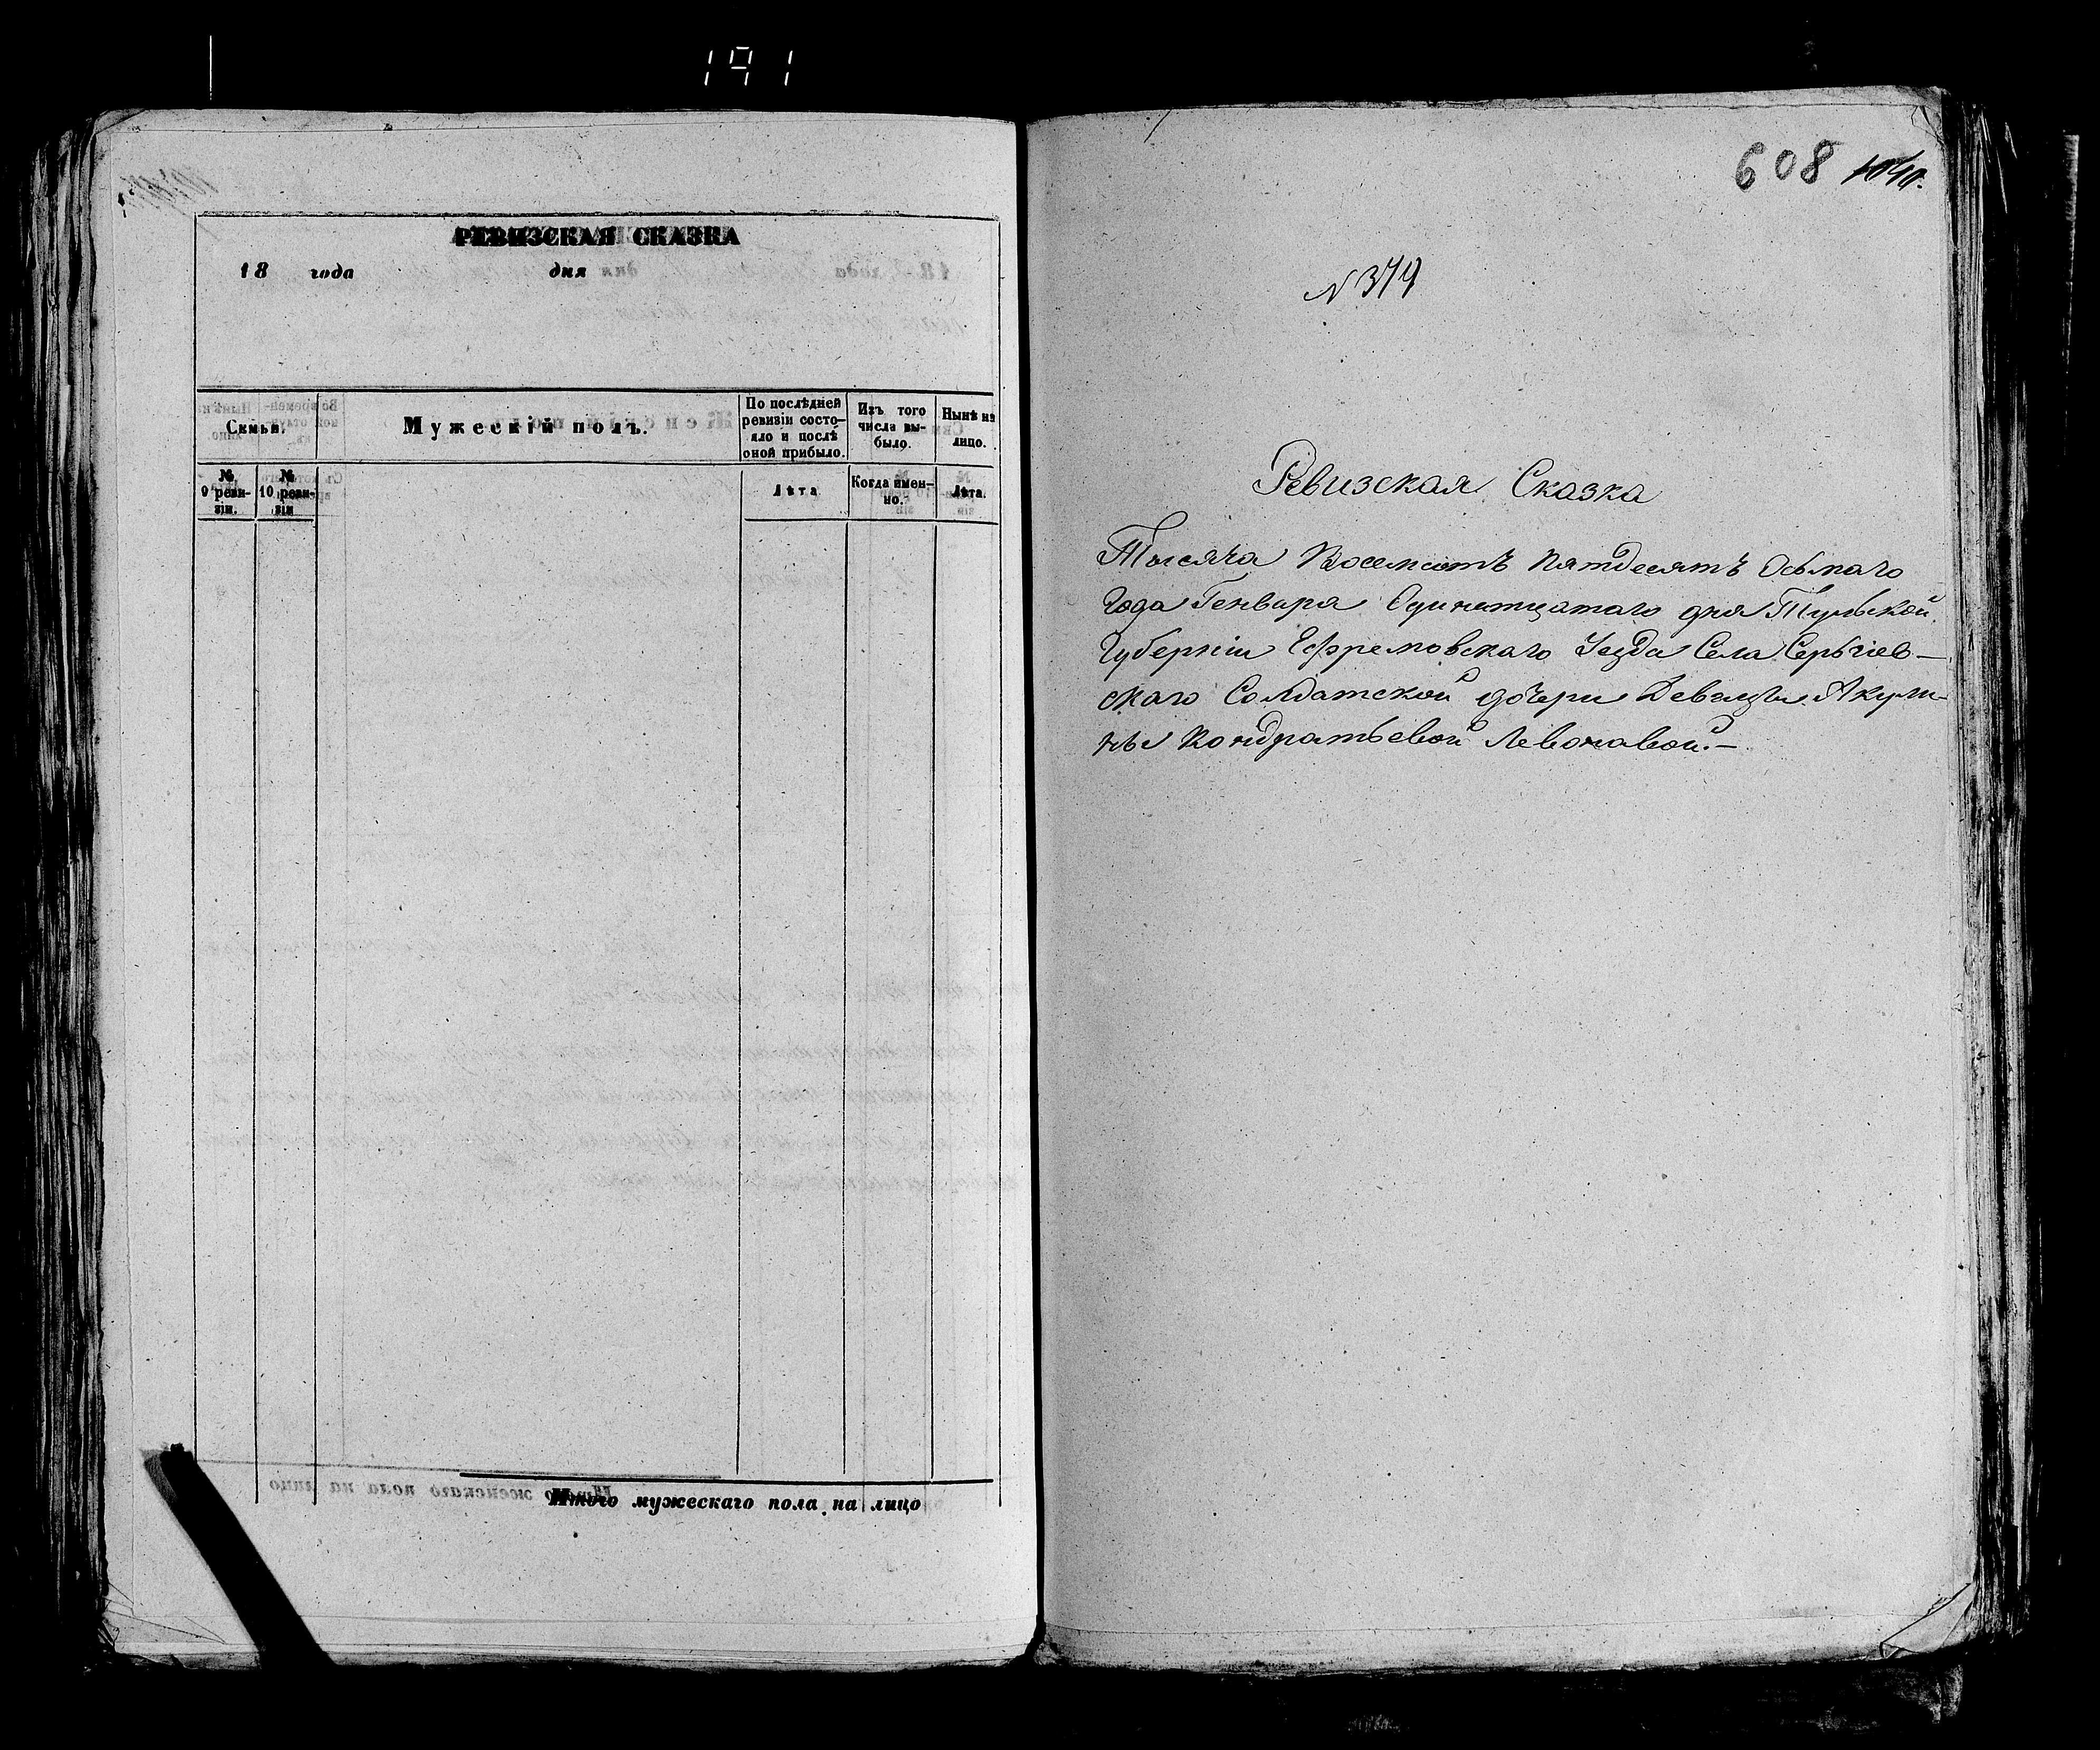 191
РЕВИЗСКАЯ СКАЗКА
18 года дня
Семьи. Мужескій полъ. По послѣдней ревизіи состояло и послѣ оной прибыло. Изъ того числа выбыло. Нынѣ на лицо.
№ 9 ревизіи. № 10 ревизіи Лѣта Когда именно. Лѣта.
Итого мужескаго пола на лицо
608
N 379
Ревизская Сказка
Тысяча Восемсотъ Пятдесятъ Осьмаго
Года Генваря Одинатцатаго дня Тульской
Губерніи Ефремовскаго Уезда Села Сергіев-
скаго Солдатской дочери Девицы Акули-
ны Кондратьевой Левоновой.-